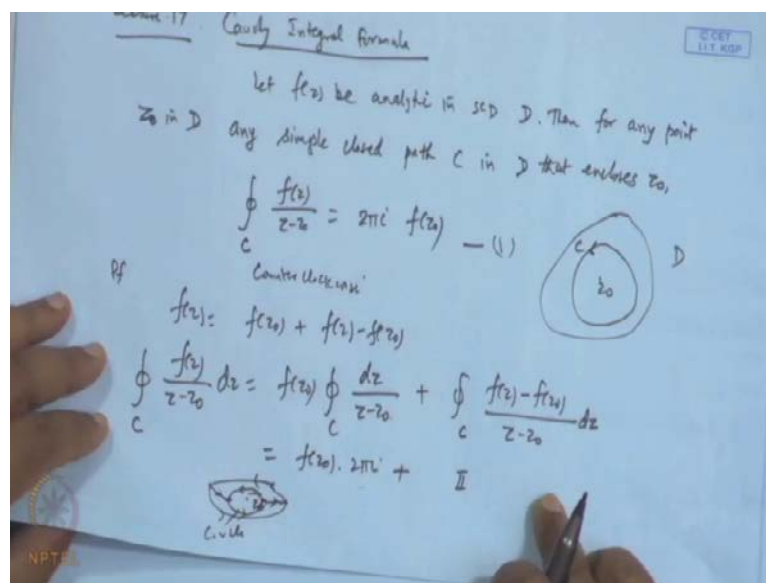 17. Cauchy Integral Formula
C CET
I.I.T. KGP
Let f(z) be analytic in SCD D. Then for any point
z₀ in D any simple closed path C in D that encloses z₀,
∮_C f(z)/(z-z₀) = 2πi f(z₀) — (1)
Counterclockwise
C
z₀
D
Pf
f(z) = f(z₀) + f(z) - f(z₀)
∮_C f(z)/(z-z₀) dz = f(z₀) ∮_C dz/(z-z₀) + ∮_C (f(z)-f(z₀))/(z-z₀) dz
= f(z₀). 2πi + II
NPTEL